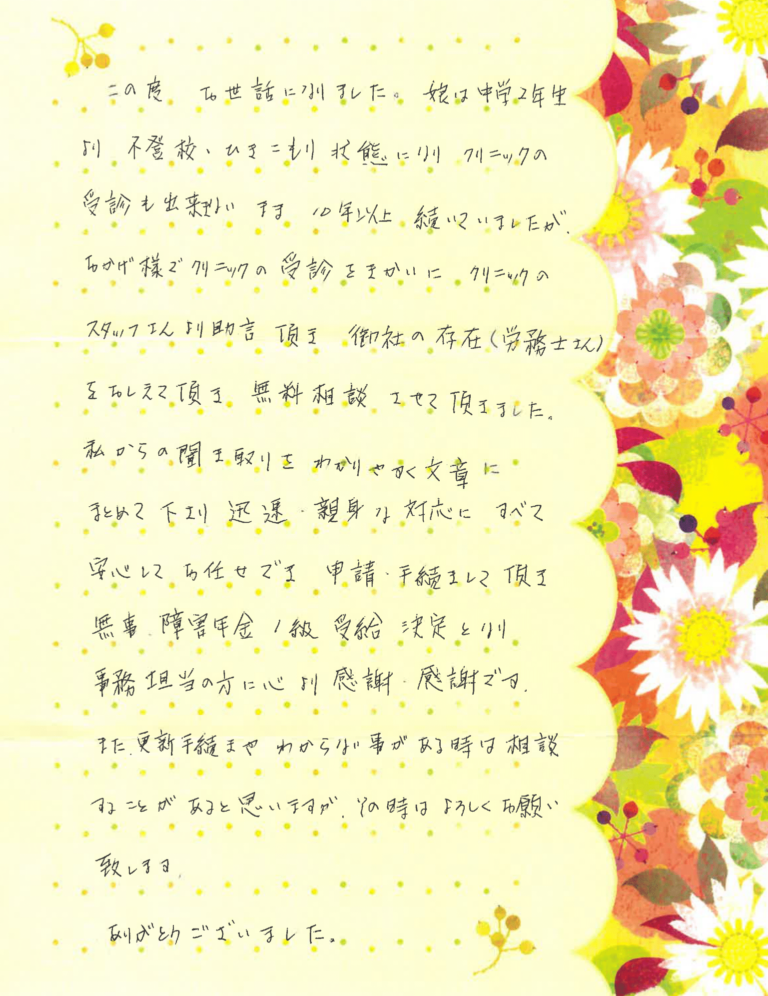 この度 お世話になりました。娘は中学2年生
より 不登校、ひきこもり状態になり クリニックの
受診も出来ないまま 10年以上 続いていましたが、
おかげ様でクリニックの受診をきかいに クリニックの
スタッフさんより助言頂き 御社の存在(労務士さん)
をおしえて頂き 無料相談させて頂きました。
私からの聞き取りをわかりやすく文章に
まとめて下さり 迅速・親身な対応に すべて
安心してお任せでき 申請・手続きして頂き
無事、障害年金1級 受給 決定となり
事務担当の方に心より感謝・感謝です。
また、更新手続きや わからない事がある時は相談
することがあると思いますが、その時はよろしくお願い
致します。
ありがとうございました。